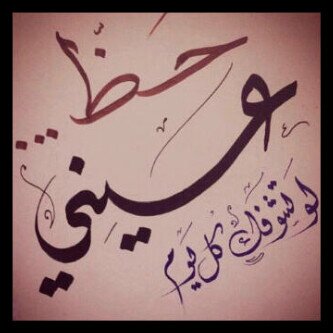 حظ
عيني
لو تشوفك كل يوم